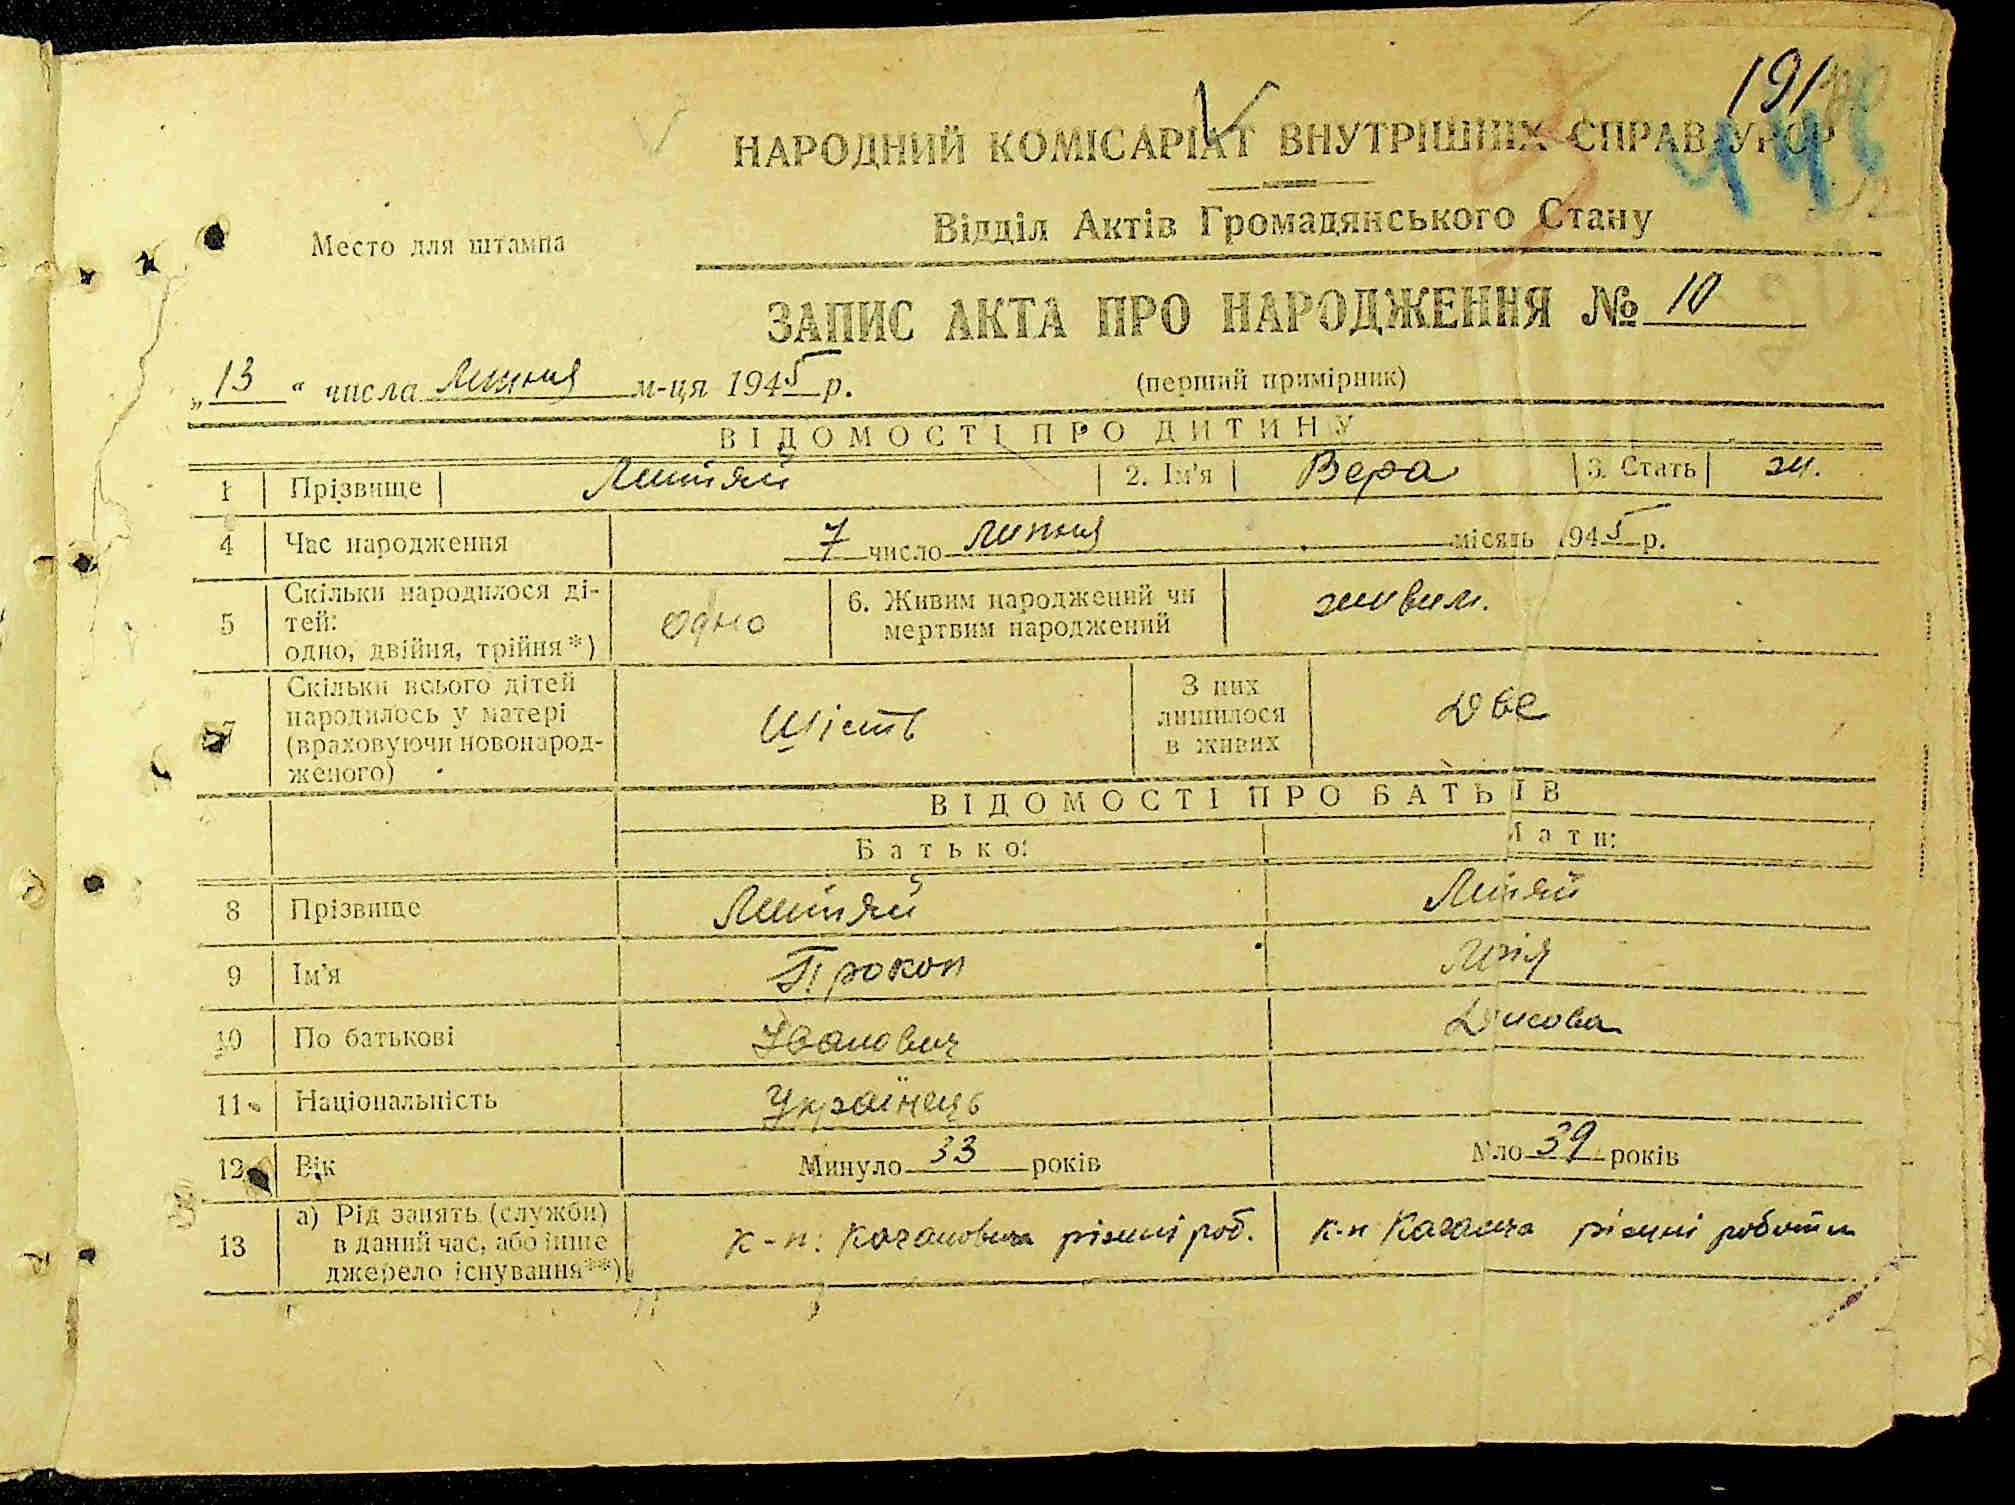 191
446
НАРОДНИЙ КОМІСАРІАТ ВНУТРІШНІХ СПРАВ УРСР
Место для штампа
Відділ Актів Громадянського Стану
ЗАПИС АКТА ПРО НАРОДЖЕННЯ № 10
„13“ числа Липня м-ця 1945 р. (перший примірник)
ВІДОМОСТІ ПРО ДИТИНУ
1 Прізвище 2. Ім'я Вера 3. Стать ж.
4 Час народження 7 число липня місяць 1945 р.
5 Скільки народилося ді-
тей:
одно, двійня, трійня*) одно 6. Живим народжений чи
мертвим народжений живим.
7 Скільки всього дітей
народилось у матері
(враховуючи новонарод-
женого) шість З них
лишилося
в живих двє
ВІДОМОСТІ ПРО БАТЬ ІВ
Батько: ати:
8 Прізвище
9 Ім'я Прокоп
10 По батькові Іванович
11 Національність Українець
12 Вік Минуло 33 років ло 39 років
13 а) Рід занять (служби)
в даний час, або інше
джерело існування**) к-п: Кагановича різниі роб. к-п різниі роботи